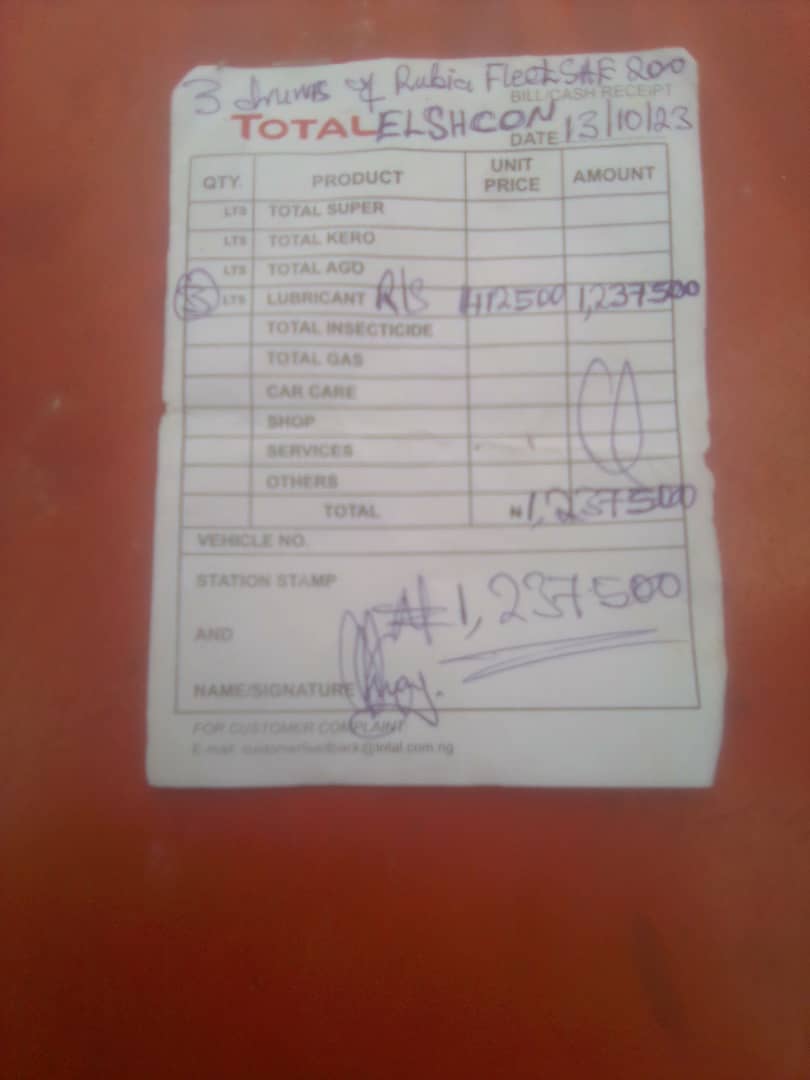 3 drums of Rubia Fleet SAE 200
BILL/CASH RECEIPT
TOTAL ELSHCON
DATE 13/10/23
QTY. PRODUCT UNIT PRICE AMOUNT
LTS TOTAL SUPER
LTS TOTAL KERO
LTS TOTAL AGO
3 LTS LUBRICANT R/S 412500 1,237500
TOTAL INSECTICIDE
TOTAL GAS
CAR CARE
SHOP
SERVICES
OTHERS
TOTAL ₦1,237500
VEHICLE NO.
STATION STAMP
₦1,237500
AND
NAME/SIGNATURE
FOR CUSTOMER COMPLAINT
E-mail: customerfeedback@total.com.ng